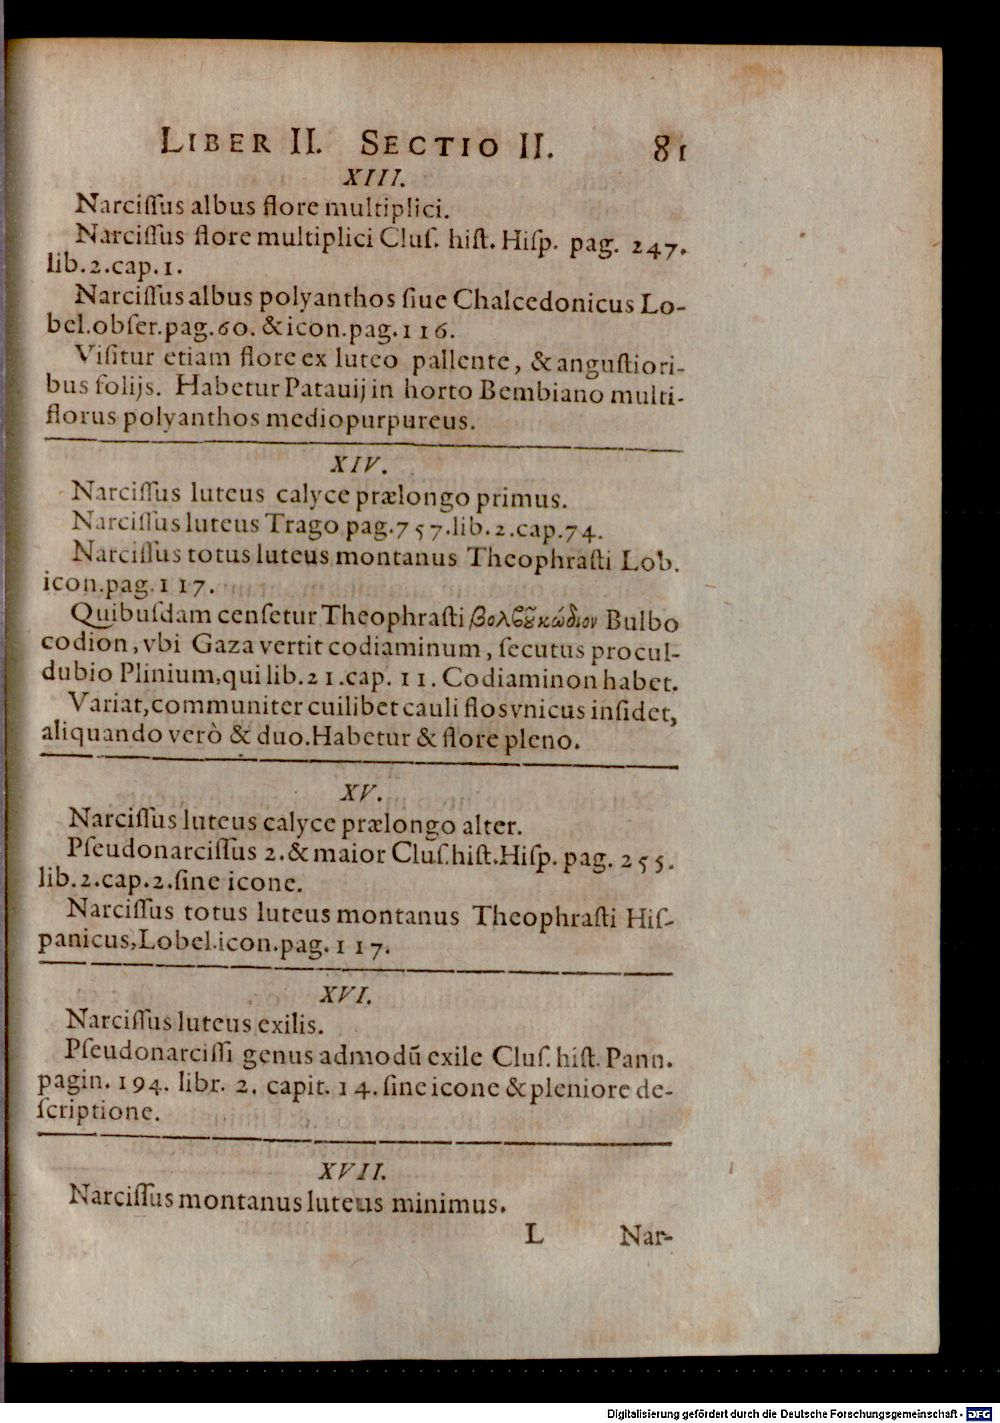 LIBER II. SECTIO II. 81
XIII.
Narciſſus albus flore multiplici.
Narciſſus flore multiplici Cluſ. hiſt. Hiſp. pag. 247.
lib.2.cap.1.
Narciſſus albus polyanthos ſiue Chalcedonicus Lo-
bel.obſer.pag.60. & icon.pag.116.
Viſitur etiam flore ex luteo pallente, & anguſtiori-
bus folijs. Habetur Patauij in horto Bembiano multi-
florus polyanthos mediopurpureus.
XIV.
Narciſſus luteus calyce prælongo primus.
Narciſſus luteus Trago pag.757.lib.2.cap.74.
Narciſſus totus luteus montanus Theophraſti Lob.
icon.pag.117.
Quibuſdam cenſetur Theophraſti βολβȣ̃κώδιον Bulbo
codion, vbi Gaza vertit codiaminum, ſecutus procul-
dubio Plinium,qui lib.21.cap. 11. Codiaminon habet.
Variat,communiter cuilibet cauli flos vnicus inſidet,
aliquando verò & duo.Habetur & flore pleno.
XV.
Narciſſus luteus calyce prælongo alter.
Pſeudonarciſſus 2.& maior Cluſ.hiſt.Hiſp. pag. 255.
lib.2.cap.2.ſine icone.
Narciſſus totus luteus montanus Theophraſti Hiſ-
panicus,Lobel.icon.pag.117.
XVI.
Narciſſus luteus exilis.
Pſeudonarciſſi genus admodũ exile Cluſ. hiſt. Pann.
pagin. 194. libr. 2. capit. 14. ſine icone & pleniore de-
ſcriptione.
XVII.
Narciſſus montanus luteus minimus.
L Nar-
Digitalisierung gefördert durch die Deutsche Forschungsgemeinschaft - DFG